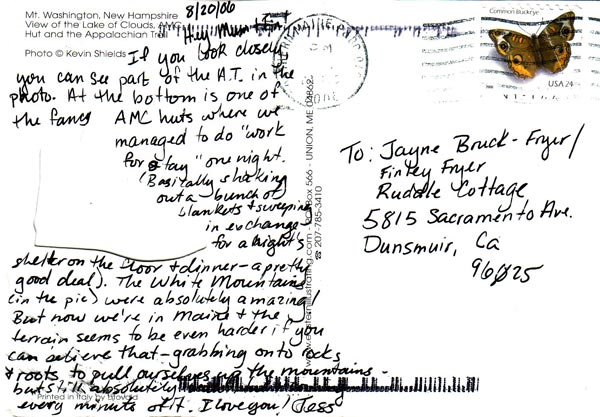 Mt. Washington, New Hampshire
View of the Lake of Clouds, AMC
Hut and the Appalachian Trail
Photo © Kevin Shields
8/20/06
If you look closely
you can see part of the A.T. in the
photo. At the bottom is one of
the fancy AMC huts where we
managed to do "work
for stay" one night.
(Basically shaking
out a bunch of
blankets & sweeping
in exchange
for a night's
shelter on the floor & dinner - a pretty
good deal). The White Mountains
(in the pic) were absolutely amazing!
But now we're in Maine & the
terrain seems to be even harder if you
can believe that - grabbing onto rocks
& roots to pull ourselves up the mountains -
but still absolutely
every minute of it. I love you! Jess
Printed in Italy by
Box 566 - UNION, ME 04862
207-785-3410
Common Buckeye
USA 24
To: Jayne Bruck-Fryer/
Finley Fryer
Ruddle Cottage
5815 Sacramento Ave.
Dunsmuir, Ca
96025